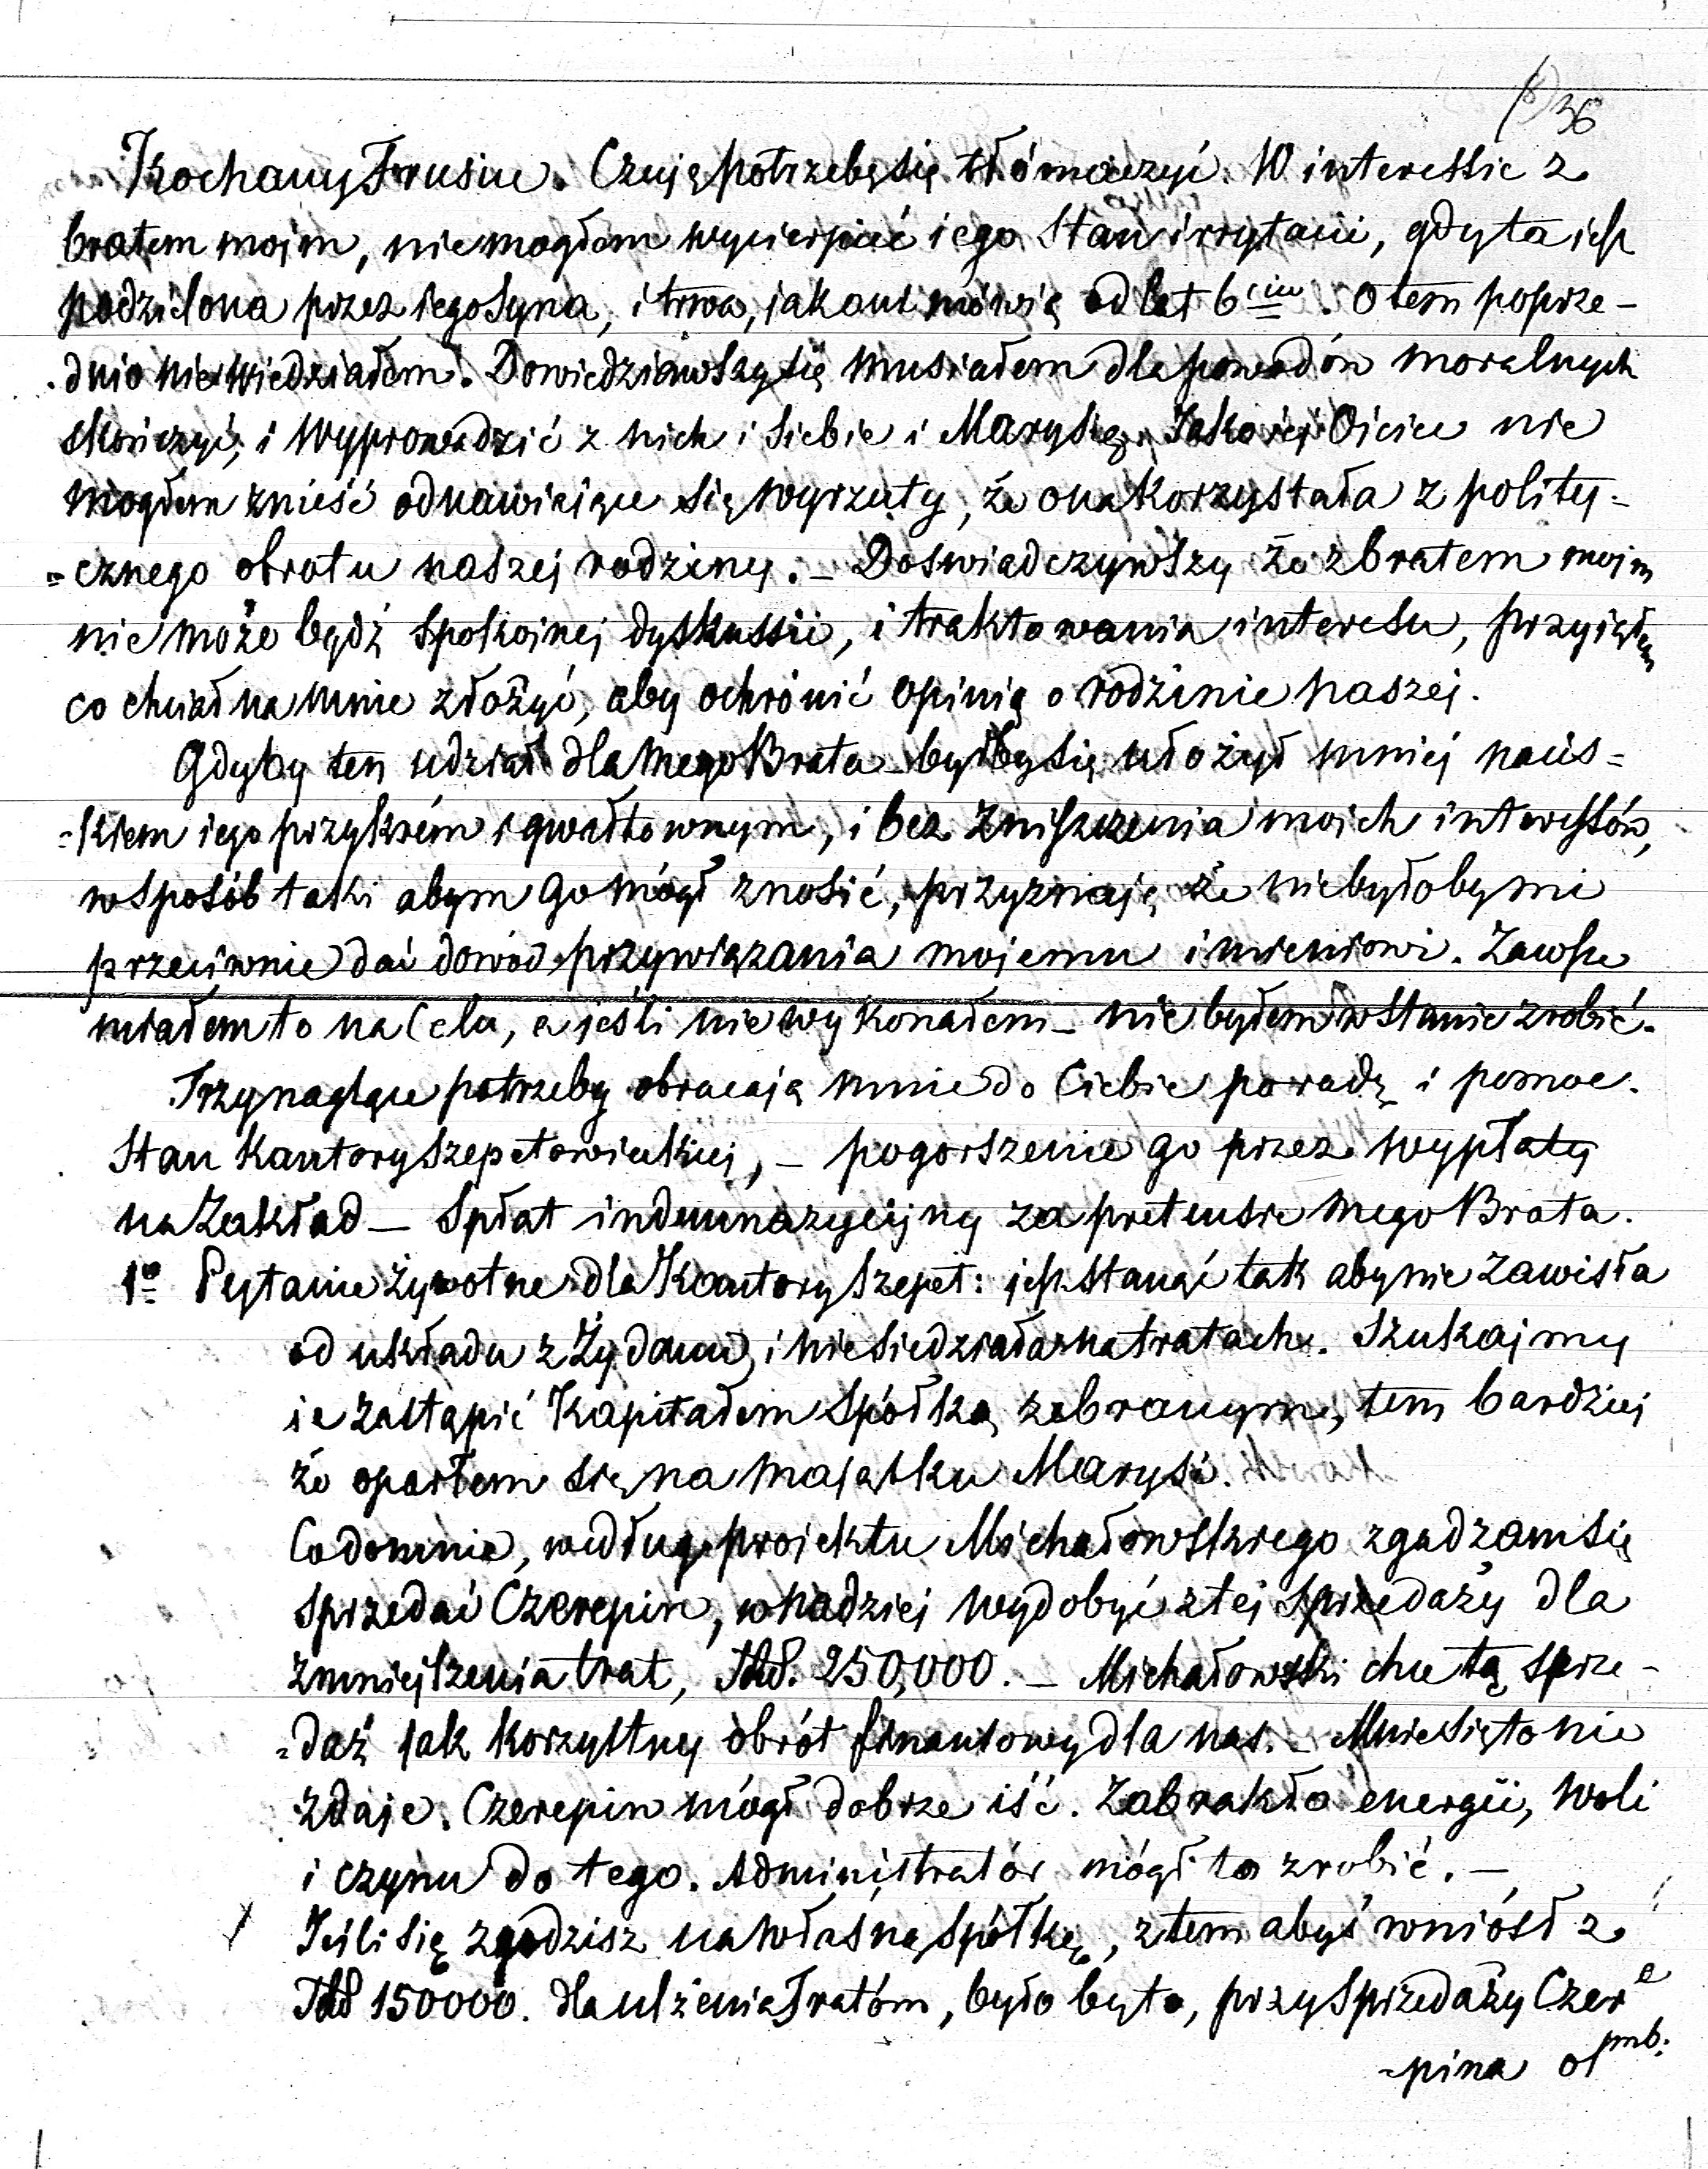 36
Kochany Frusiu. Czuję potrzebę się tłómaczyć. W interessie z
bratem moim, nie mogłem wycierpieć iego stan irrytacii, gdy ta jest
podzielona przez iego syna, i trwa, jak oni mówią od lat 6ciu. O tem poprze-
dnio nie wiedziałem. Dowiedziawszy się musiałem dla powodów moralnych
skończyć, i wyprowadzić z nich i siebie i Marysię. Jako iej Oiciec nie
mogłem znieść odnawiaiące się wyrzuty, że ona korzystała z polity-
=cznego obrotu naszej rodziny. – Doswiadczywszy że z bratem moim
nie może bydź spokojnej dyskussii, i traktowania interesu, przyiąłem
co chciał na mnie złożyć, aby ochronić opinią o rodzinie naszej.
Gdyby ten udział dla mego Brata byłby się ułożył mniej nacis=
=kiem iego przykrém i gwałtownym, i bez zniszczenia moich interessów,
w sposób taki abym go mógł znosić, przyznaję że nie byłoby mi
przeciwnie dać dowód przywiązania mojemu imieniowi. Zawsze
miałem to na Celu, a jeśli nie wykonałem – nie byłem w stanie zrobić.
Trzy naglące potrzeby obracają mnie do Ciebie po radę i pomoc.
Stan Kantory Szepetowieckiej, – pogorszenie go przez wypłaty
na Zakład – Spłat indemnazycijny za pretensie mego Brata.
1o Pytanie żywotne dla Kantory Szepet: jest stanąć tak aby nie zawisła
od układu z Żydami, i nie siedziała na tratach. Szukajmy
ie zastąpić Kapitałem spółką zebranym, tem bardziej
że oparłem się na majątku Marysi.
Co do mnie, według projektu Michałowskiego zgadzam się
sprzedać Czerepin, w nadziei wydobyć z tej sprzedaży dla
zmniejszenia trat, 250,000. – Michałowski chce tą sprze-
=daż jak korzystny obrót finansowy dla nas. – Mnie się to nie
zdaje. Czerepin mógł dobrze iść. Zabrakło energii, woli
i czynu do tego. Administratór mógł to zrobić. –
Jeśli się zgodzisz na własną spółkę, z tem abyś wniósł z
150000. dla ulżenia Tratóm, było by to, przy sprzedaży Czere
-pina